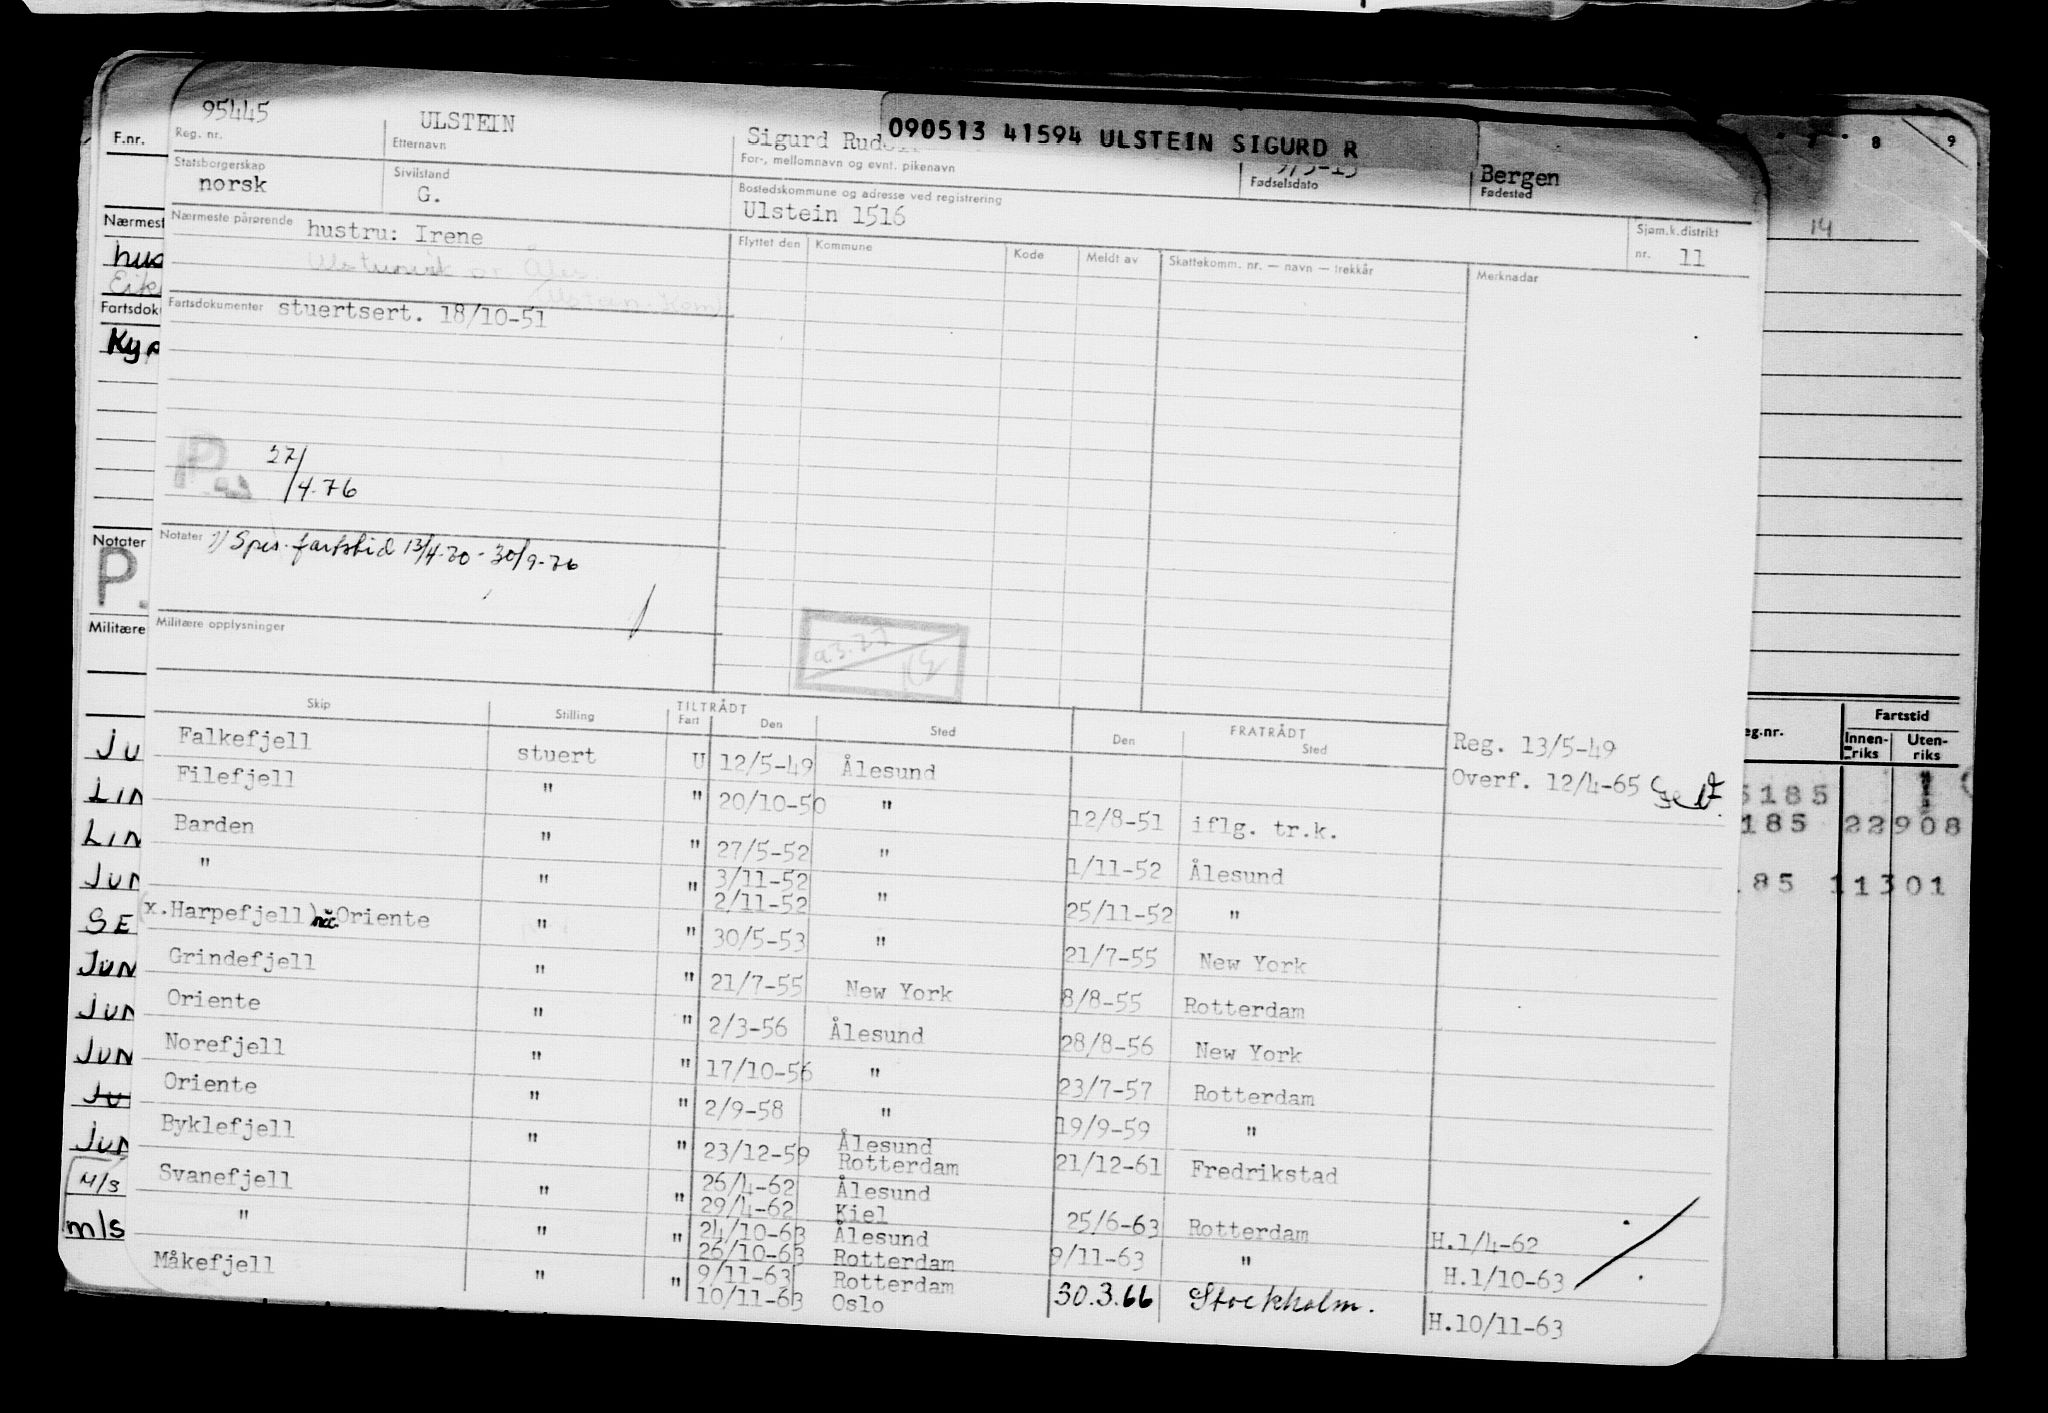 95445 ULSTEIN Sigurd Rud 090513 41594 ULSTEIN SIGURD R
F.nr. Reg. nr. Etternavn For-, mellomnavn og evnt. pikenavn Fødselsdato Bergen Fødested 8 9
Statsborgerskap Sivilstand Bostedskommune og adresse ved registrering
norsk G. Ulstein 1516 14
Nærmest Nærmeste pårørende hustru: Irene Flyttet den Kommune Kode Meldt av Skattekomm. nr. — navn — trekkår Merknadar Sjøm.k.distrikt nr. 11
hus
Fartsdok Fartsdokumenter stuertsert. 18/10-51
P. 27/4.76
Notater Notater 1) Spes. fartstid 13/4-70 - 30/9-76
P.
Militære Militære opplysninger
Skip Stilling TILTRÅDT Fart Den Sted FRATRÅDT Den Sted
eg.nr. Fartstid Innen-riks Uten-riks
Falkefjell stuert U 12/5-49 Ålesund Reg. 13/5-49
Filefjell " " 20/10-50 " 12/8-51 iflg. tr.k. Overf. 12/4-65
Barden " " 27/5-52 " 1/11-52 Ålesund
" " " 3/11-52
2/11-52 " 25/11-52 "
(x.Harpefjell) Oriente " " 30/5-53 " 21/7-55 New York
Grindefjell " " 21/7-55 New York 8/8-55 Rotterdam
Oriente " " 2/3-56 Ålesund 28/8-56 New York
Norefjell " " 17/10-56 " 23/7-57 Rotterdam
Oriente " " 2/9-58 " 19/9-59 "
Byklefjell " " 23/12-59 Ålesund
Rotterdam 21/12-61 Fredrikstad
Svanefjell " " 26/4-62 Ålesund
29/4-62 Kiel 25/6-63 Rotterdam H.1/4-62
" " " 24/10-63 Ålesund
26/10-63 Rotterdam 9/11-63 " H.1/10-63
Måkefjell " " 9/11-63 Rotterdam
10/11-63 Oslo 30.3.66 Stockholm. H.10/11-63
5185
185 22908
185 11301
M/S
m/s